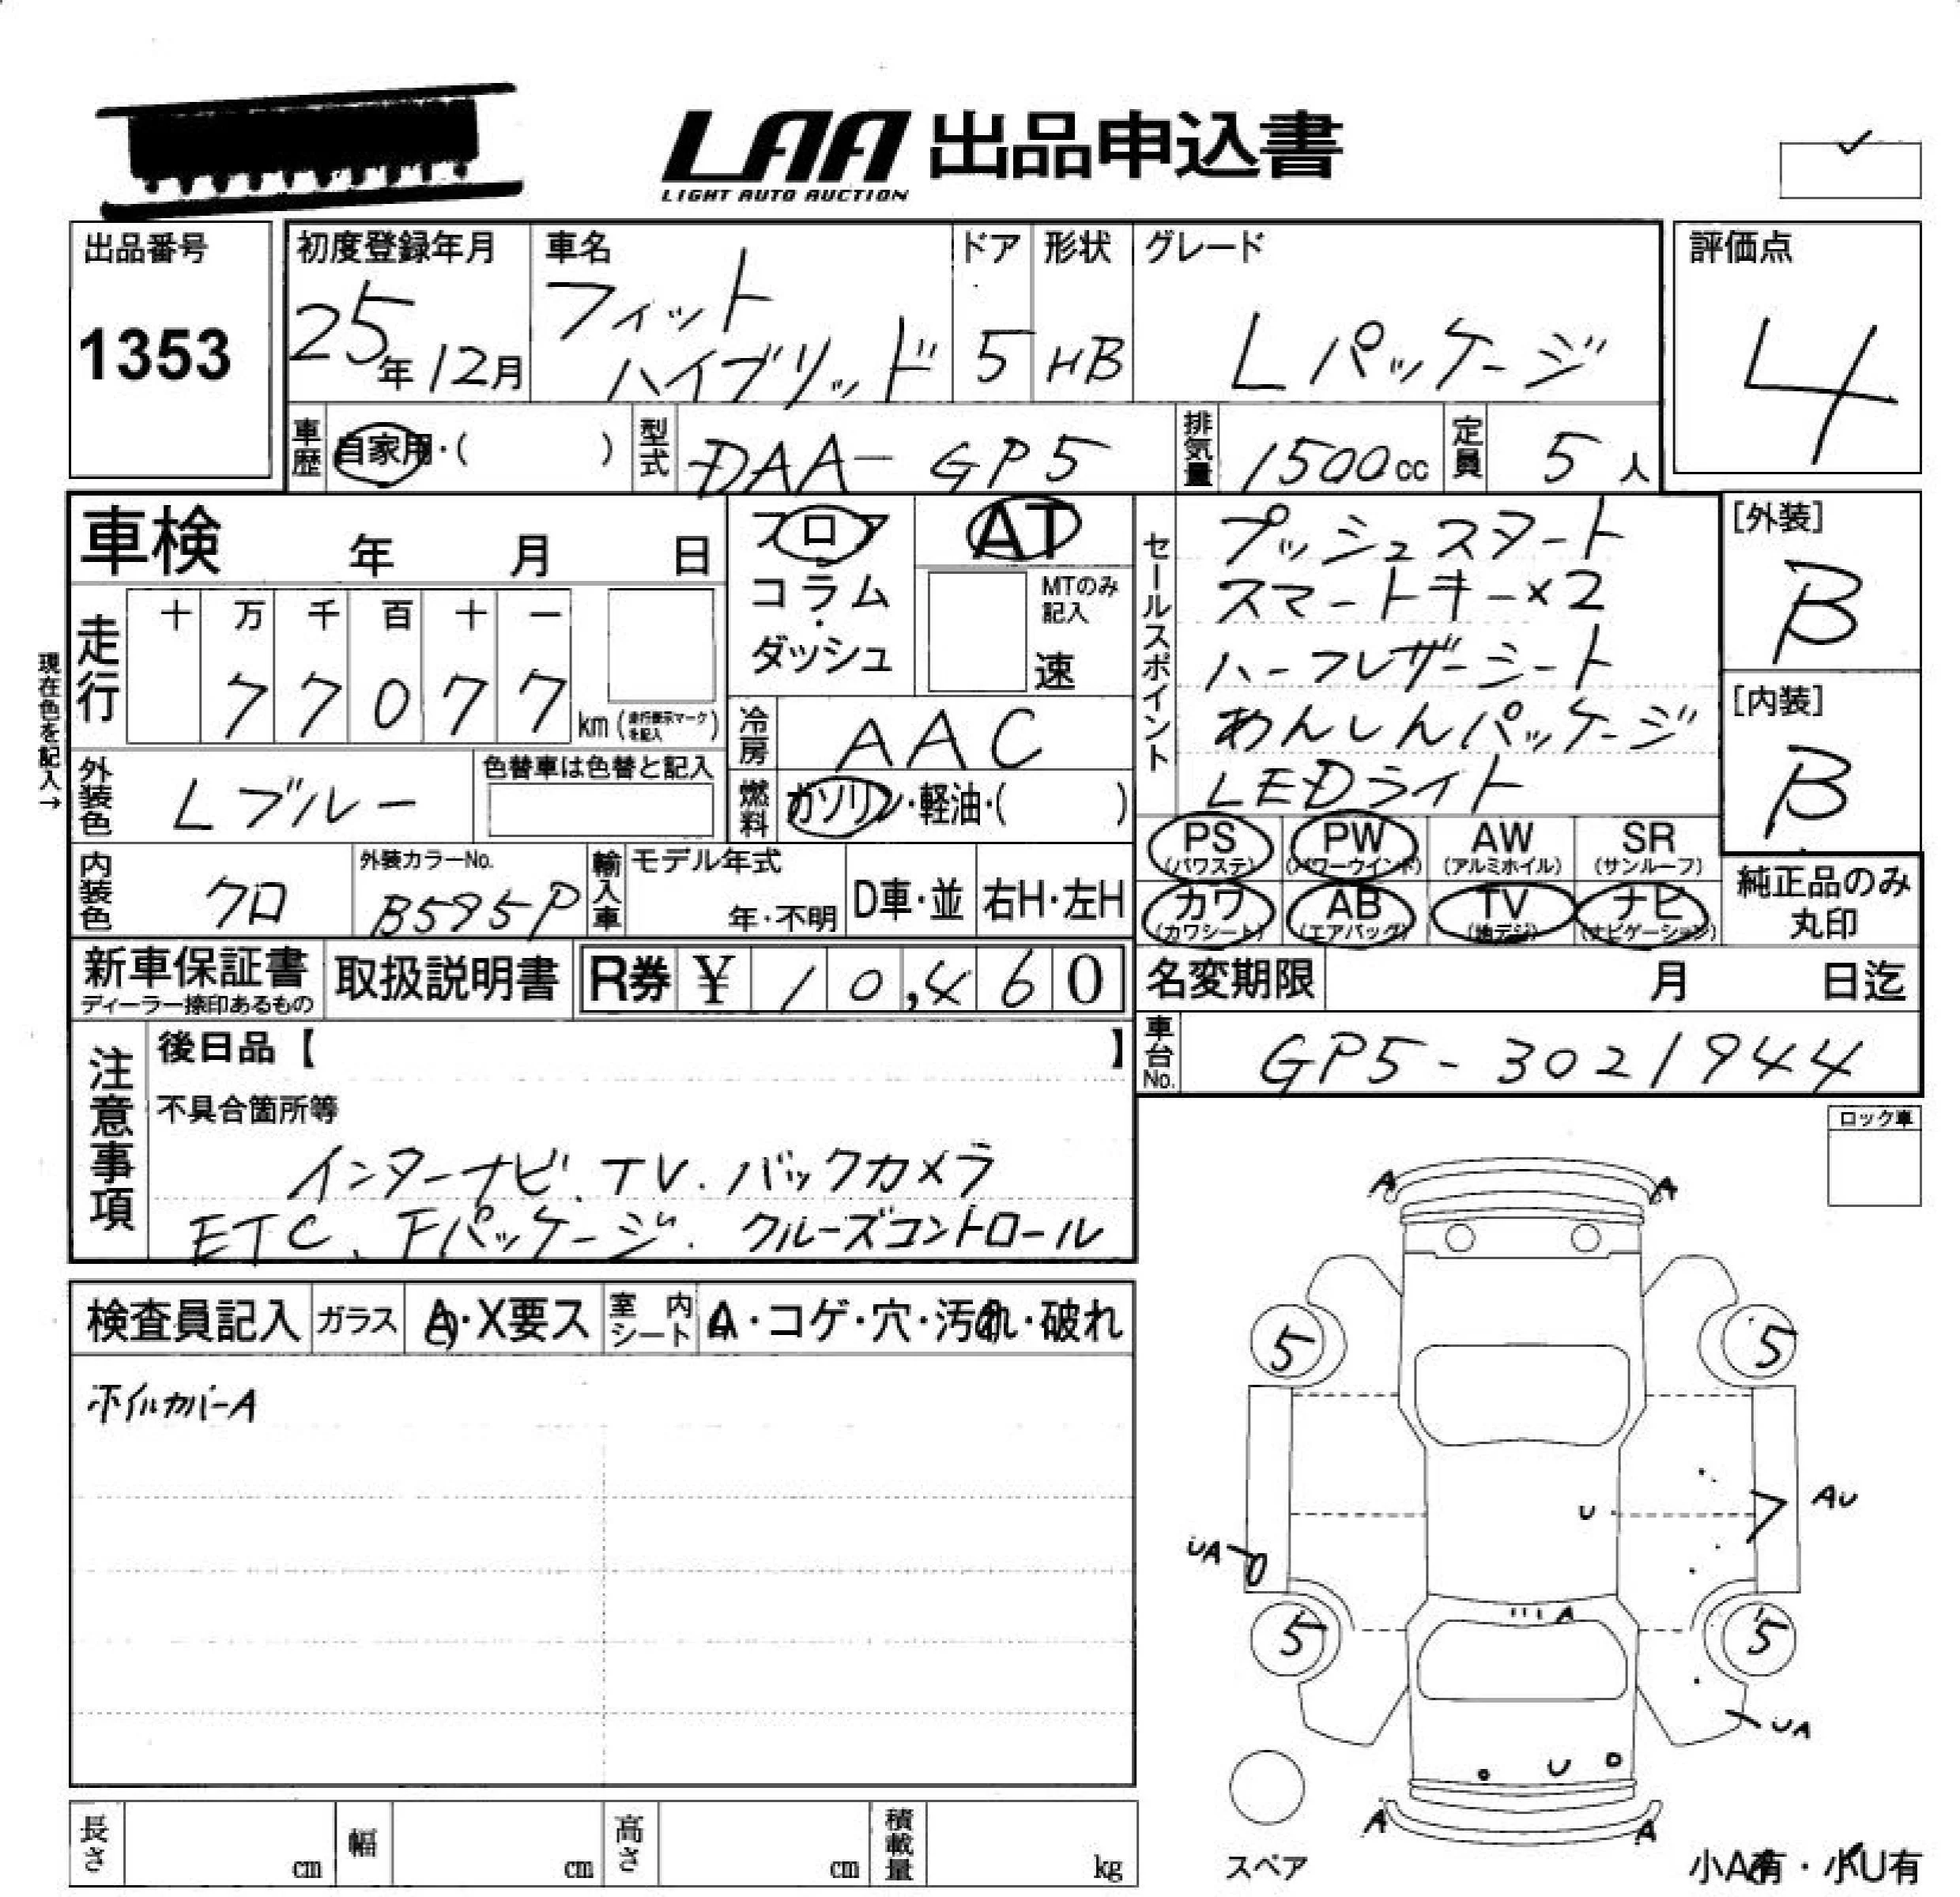 LAA 出品申込書
LIGHT AUTO AUCTION
出品番号
1353
初度登録年月
25年12月
車名
フィット
ハイブリッド
ドア
5
形状
HB
グレード
Lパッケージ
評価点
4
車歴
自家用・( )
型式
DAA-GP5
排気量
1500cc
定員
5人
車検 年 月 日
フロア
コラム
・
ダッシュ
AT
MTのみ
記入
速
セールスポイント
プッシュスタート
スマートキー×2
ハーフレザーシート
あんしんパッケージ
LEDライト
[外装]
B
[内装]
B
現在色を記入→
走行
十 万 千 百 十 一
7 7 0 7 7
km (走行表示マークを記入)
冷房
AAC
燃料
ガソリン・軽油・( )
外装色
Lブルー
色替車は色替と記入
PS
(パワステ)
PW
(パワーウインド)
AW
(アルミホイル)
SR
(サンルーフ)
カワ
(カワシート)
AB
(エアバッグ)
TV
(地デジ)
ナビ
(ナビゲーション)
純正品のみ
丸印
内装色
クロ
外装カラーNo.
B595P
輸入車
モデル年式
年・不明
D車・並
右H・左H
新車保証書
ディーラー捺印あるもの
取扱説明書
R券 ¥ 10,460
名変期限 月 日迄
車台No.
GP5-3021944
注意事項
後日品【 】
不具合箇所等
インターナビ、TV.バックカメラ
ETC、Fパッケージ.クルーズコントロール
ロック車
検査員記入
ガラス
A・X要ス
室内シート
A・コゲ・穴・汚れ・破れ
ホイルカバーA
A A
5 5
U
AU
UA
A
5 5
UA
U
A A
スペア
小A有・小U有
長さ cm
幅 cm
高さ cm
積載量 kg